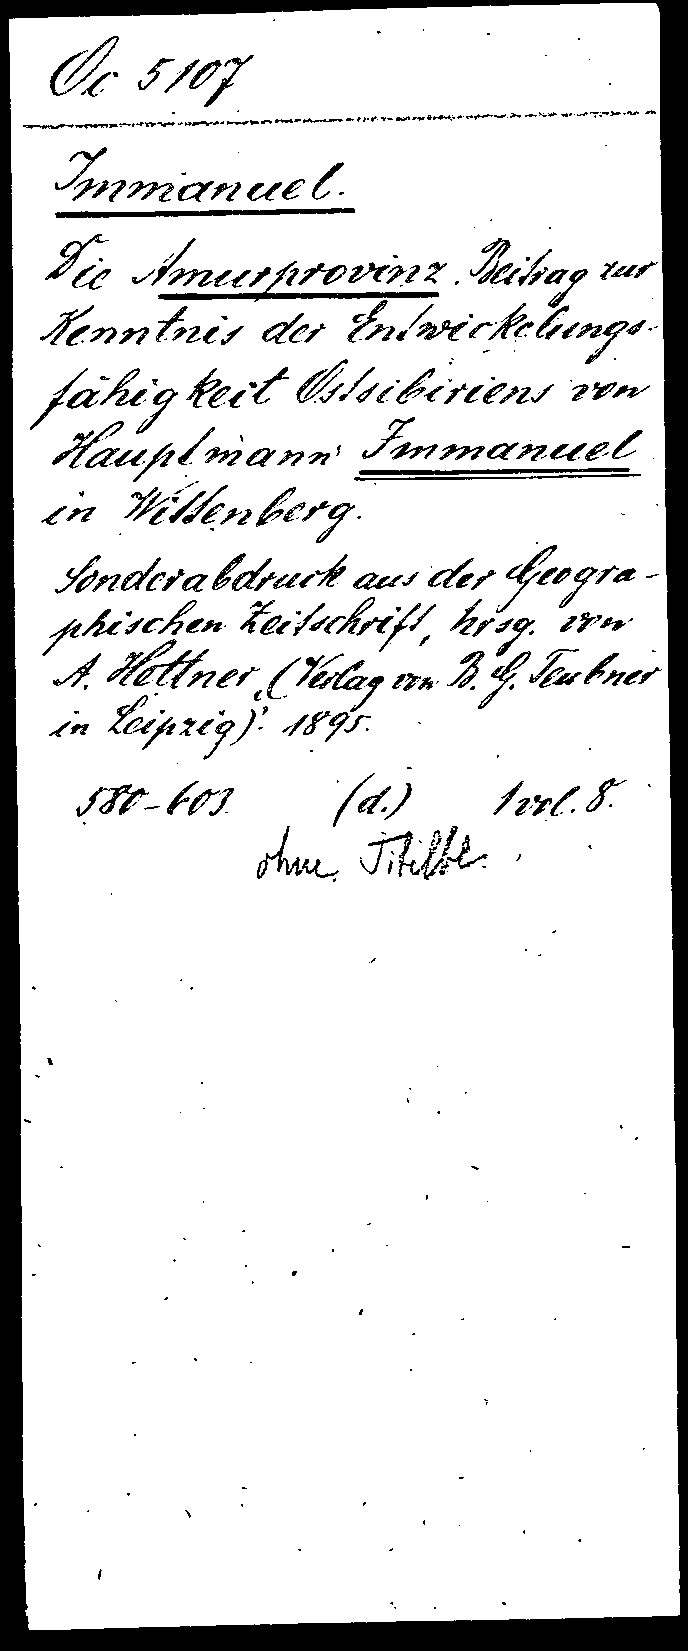 Oc 5107
Immanuel.
Die Amurprovinz. Beitrag zur
Kenntnis der Entwickelungs-
fähigkeit Ostsibiriens von
Hauptmann Immanuel
in Wittenberg.
Sonderabdruck aus der Geogra-
phischen Zeitschrift, hrsg. von
A. Hettner, (Verlag von B. G. Teubner
in Leipzig). 1895.
580-603 (d.) 1 vol. 8.
ohne Titelbl.